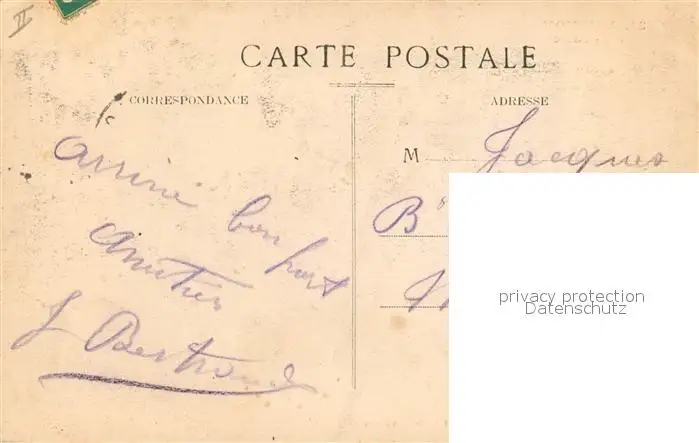 II
CARTE POSTALE
CORRESPONDANCE
ADRESSE
Arrivé bon port
Amitiés
J Bertrand
M Jacques
B
privacy protection
Datenschutz